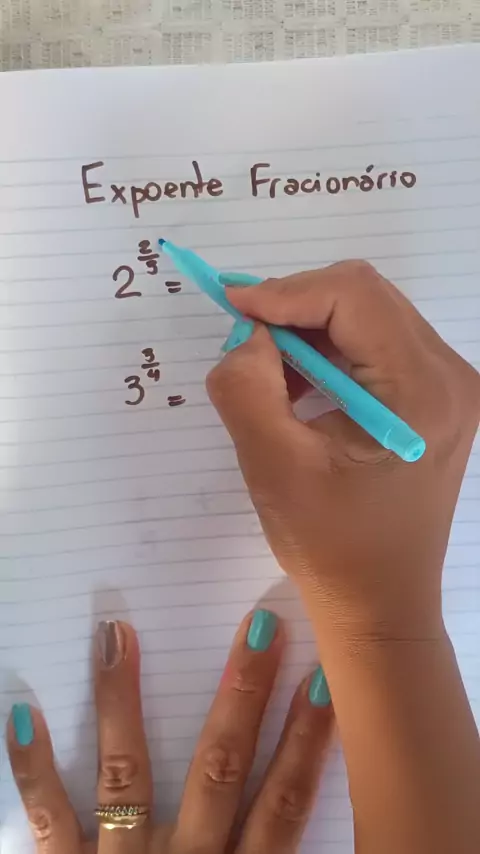 Expoente Fracionário
2^(2/5) =
3^(3/4) =